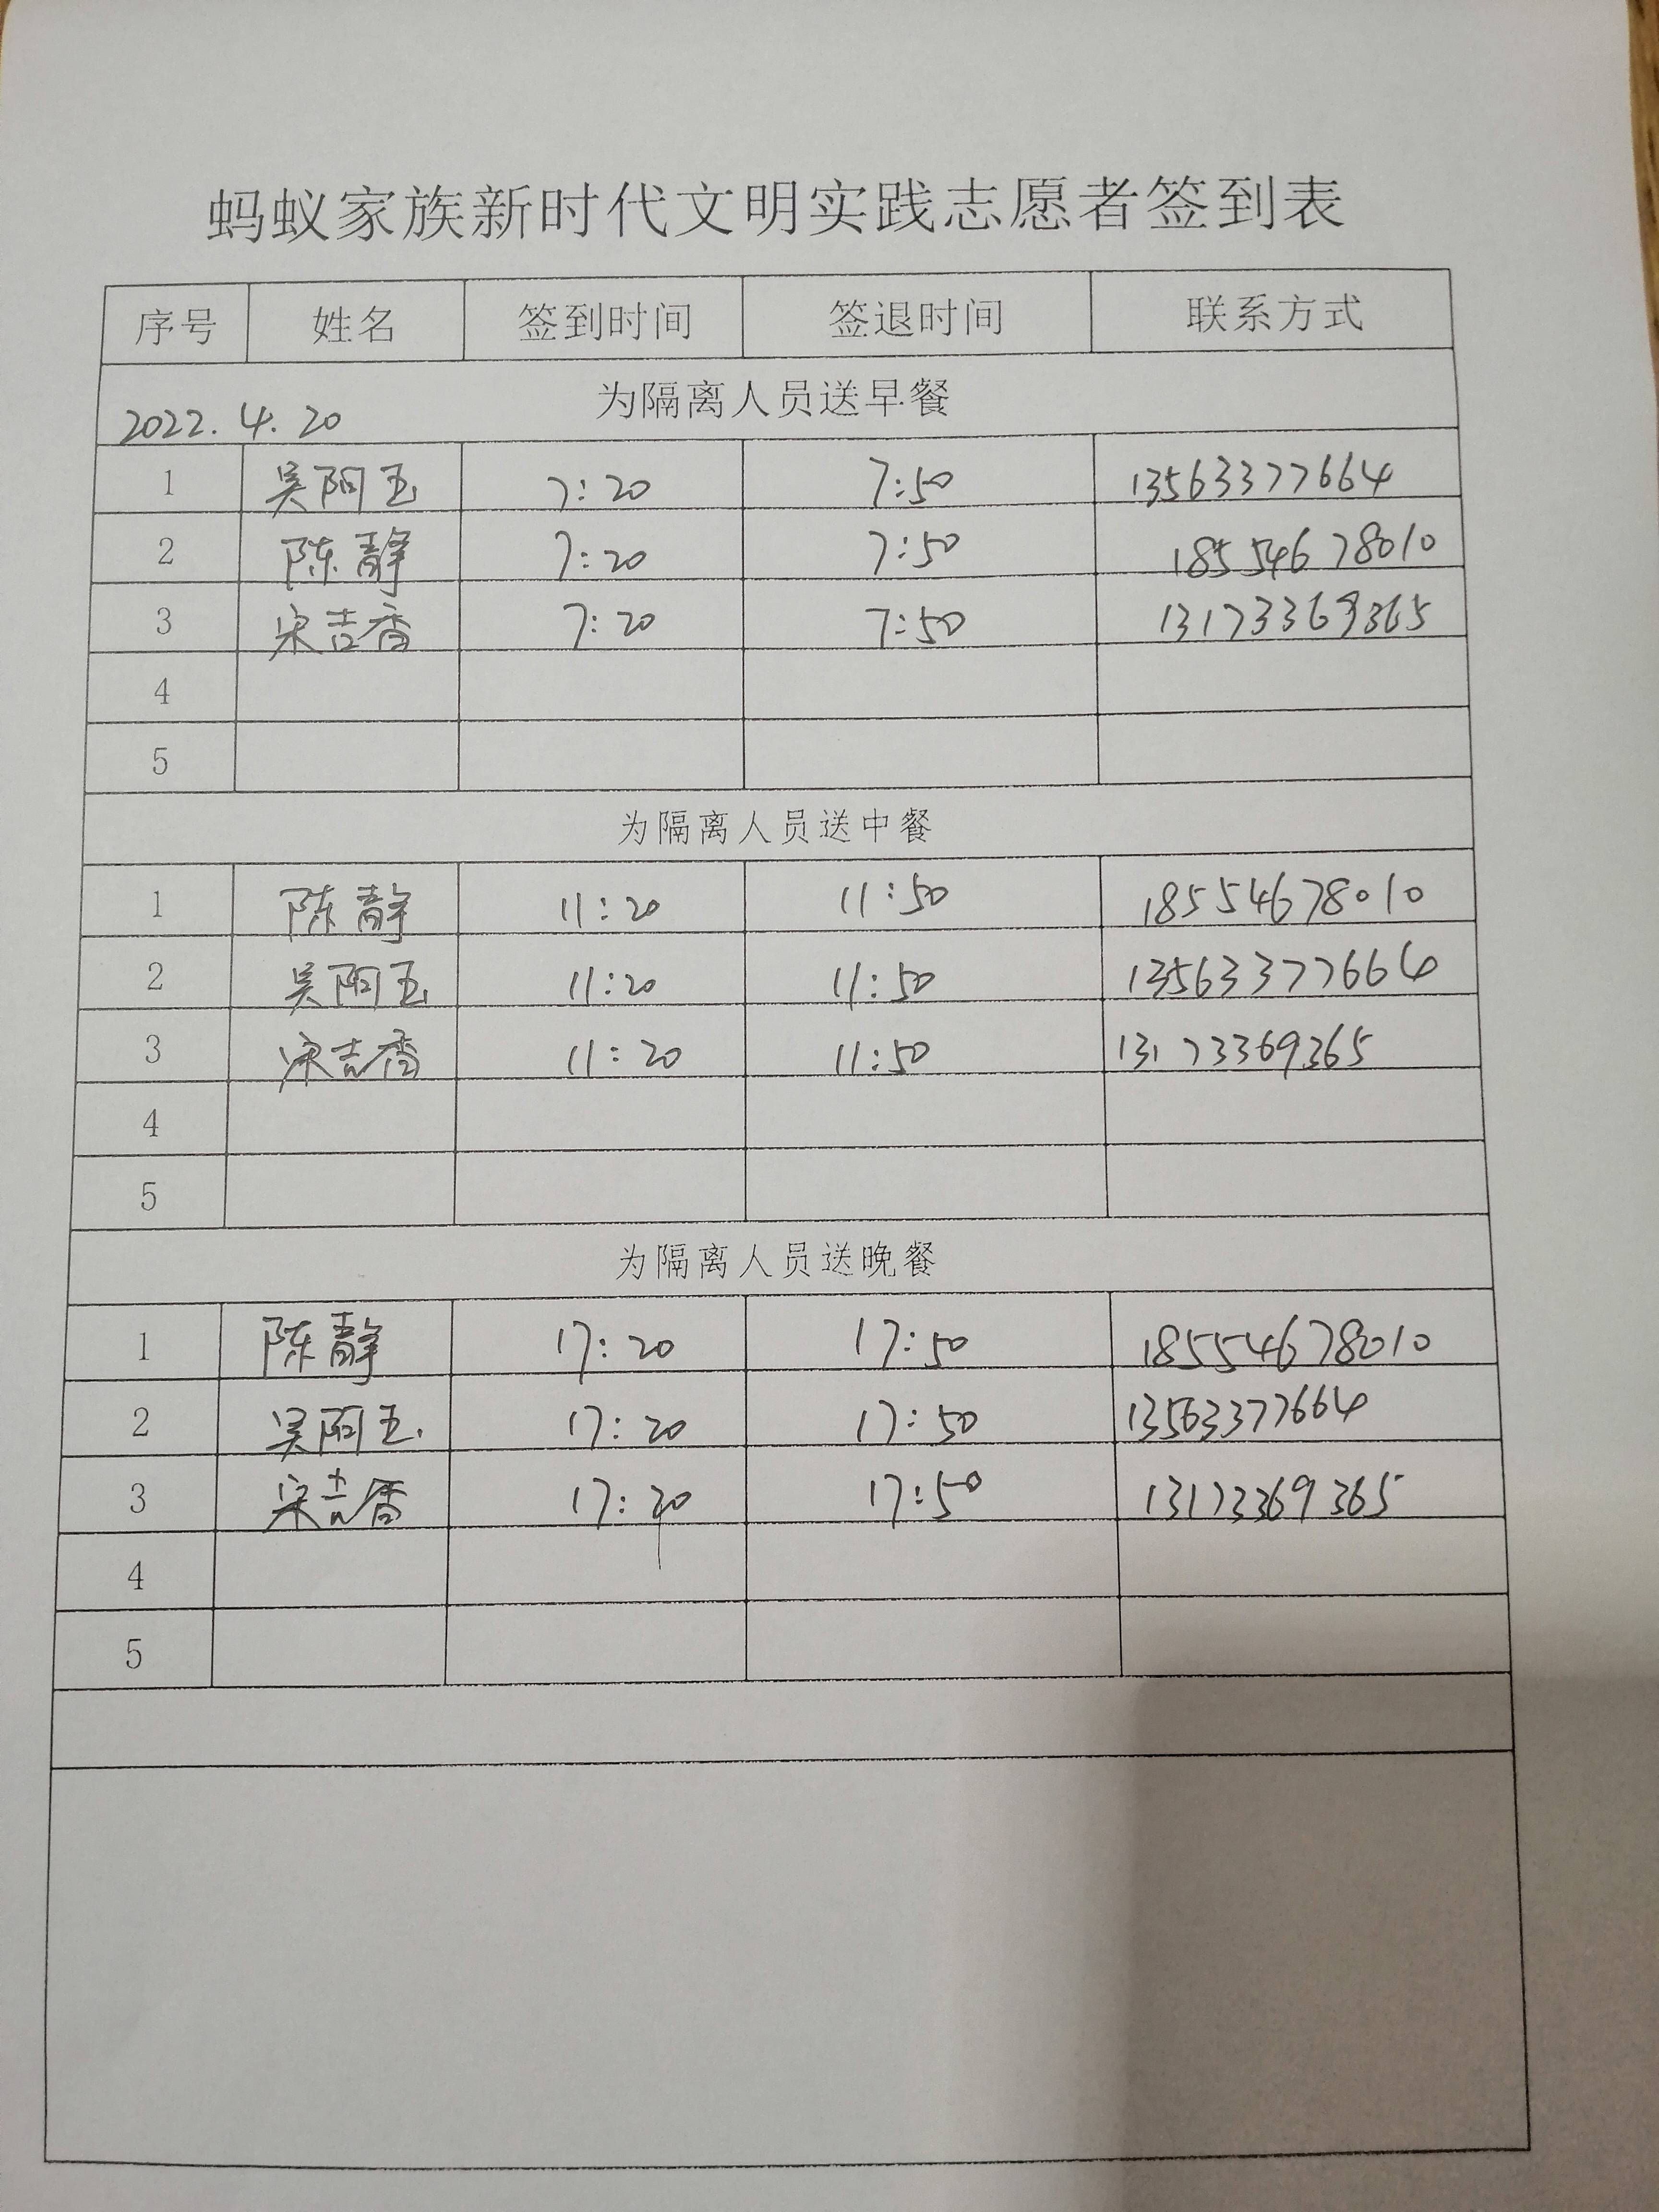 蚂蚁家族新时代文明实践志愿者签到表
序号 姓名 签到时间 签退时间 联系方式
为隔离人员送早餐
2022.4.20
1 吴阿玉 7:20 7:50 13563377664
2 陈静 7:20 7:50 18554678010
3 宋吉香 7:20 7:50 13173369365
4
5
为隔离人员送中餐
1 陈静 11:20 11:50 18554678010
2 吴阿玉 11:20 11:50 13563377664
3 宋吉香 11:20 11:50 13173369365
4
5
为隔离人员送晚餐
1 陈静 17:20 17:50 18554678010
2 吴阿玉 17:20 17:50 13563377664
3 宋吉香 17:20 17:50 13173369365
4
5